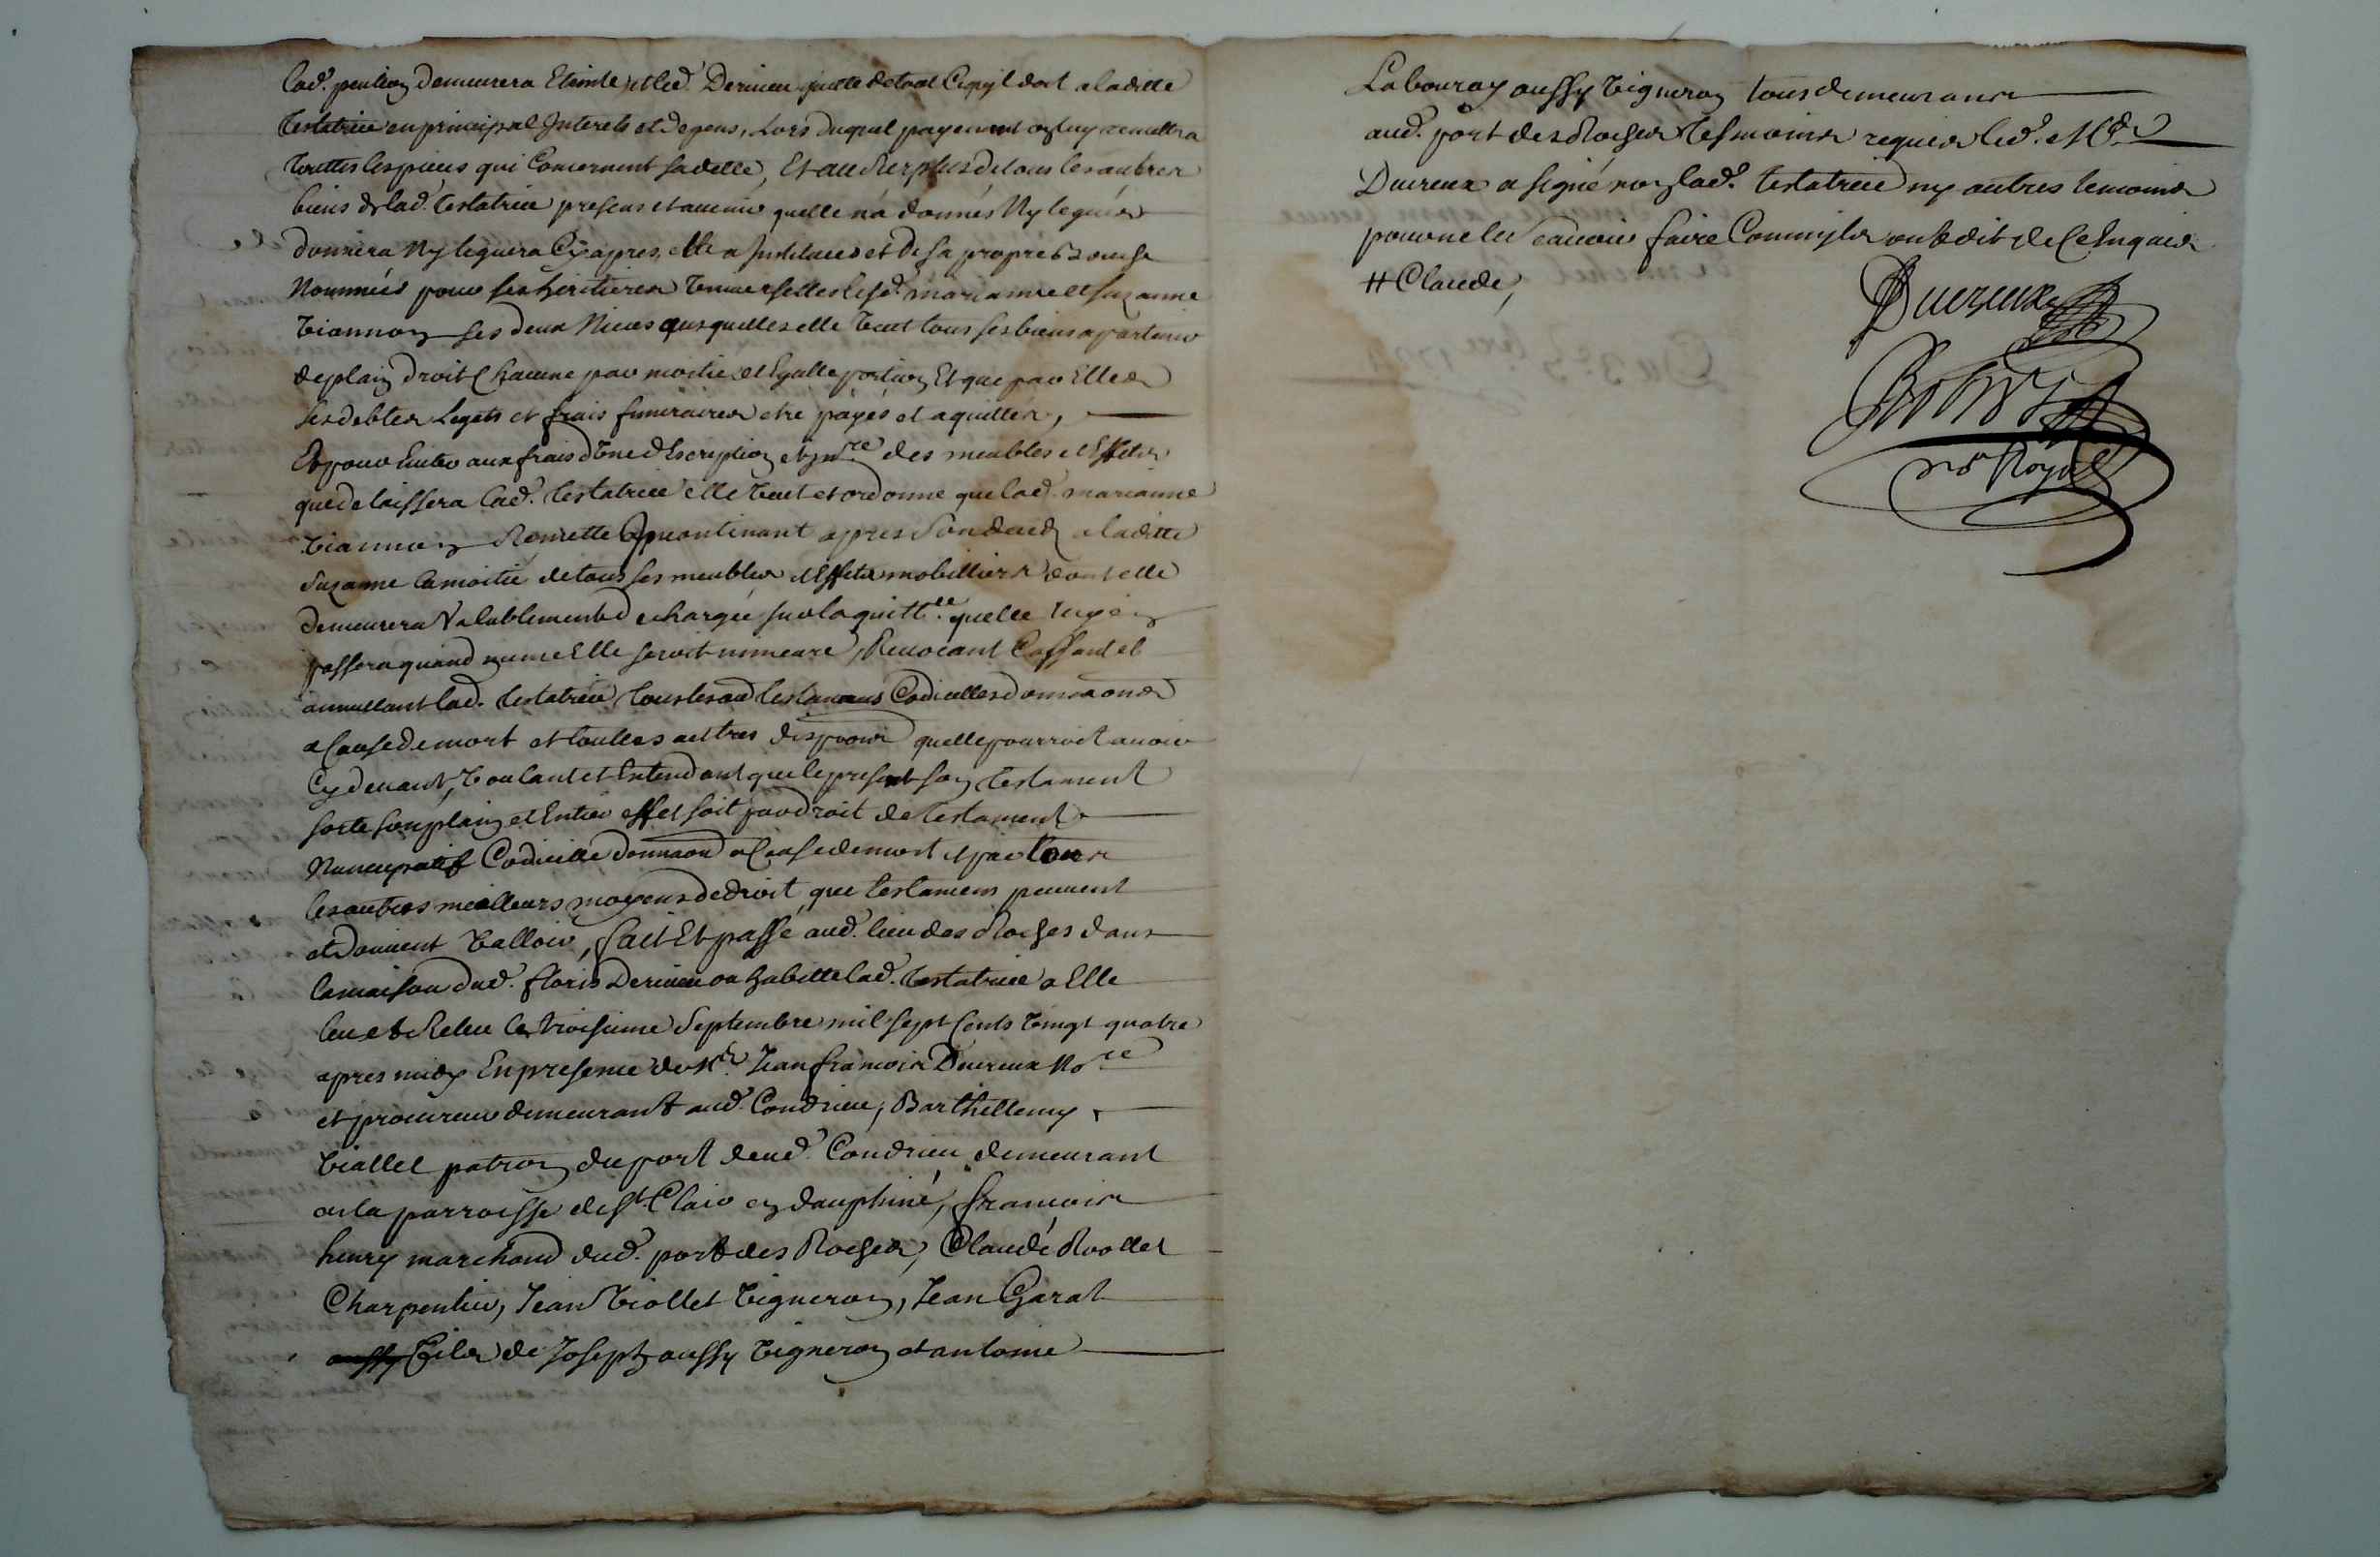 lad. pention demeurera Eteinte, et led. Derieu quitte de tout Ce qu'il doit a laditte
testatrice en principal Interets et depens, Lors duquel payement on luy remettra
touttes les pieces qui Concernent sadette, Et au surplus de tous les autres
biens de lad. testatrice presens et avenir quelle n'a donnés Ny legués
donnera Ny leguera Cy apres, elle a Institués et de sa propre bouche
Nommées pour ses heritieres Universelles lesd. marianne et suzanne
Viannon ses deux Nieces ausquelles elle Veut tous ses biens apartenir
de plain droit Chacune par moitié et Egalle portion Et que par Elles
ses debtes Legats et frais funeraires etre payés et aquittés,
Et pour Eviter aux frais d'Une dEscription et inre des meubles et Effets
que delaissera lad. testatrice elle Veut et ordonne que lad. marianne
Viannon Remette Incontinant apres Son deceds a laditte
Suzanne la moitié de tous ses meubles et Effets mobilliers dont elle
demeurera Valablement dechargée sur la quittce. quelle luy en
passera quand meme Elle seroit mineure, Revocant Cassant et
annullant lad. testatrice tous les aud testamens Codicilles donnaons
a Cause de mort et touttes autres dispoons quelle pourroit avoir
Cy devant, Voulant et Entendant que le present son testament
sorte son plain et Entier effet soit par droit de testament
Nuncupatif Codicille donnaon a Cause de mort et par tous
les autres meilleurs moyens de droit que testamens peuvent
et doivent Valloir, fait Et passé aud. lieu des Roches dans
la maison dud. floris Derieu ou habitte lad. testatrice a Elle
leu et Releu le troisieme Septembre mil sept Cents Vingt quatre
apres midy En presence de Me. Jean francois Ducreux Nore
et procureur demeurant aud. Condrieu, Barthellemy
Viallet patron du port dud. Condrieu demeurant
en la parroisse de St. Clair en dauphiné, francois
henry marchand dud. port des Roches, Claude Rvollet
Charpentier, Jean Viollet Vigneron, Jean Garat
aussy fils de Joseph aussy Vigneron et antoine
Labouray aussy Vigneron tous demeurans
aud. port des Roches tesmoins requis led. Me.
Ducreux a signé non lad. testatrice ny autres temoins
pour ne le scavoir faire Comme ils ont dit de Ce Enquis
# Claude,
Ducreux
no Royal